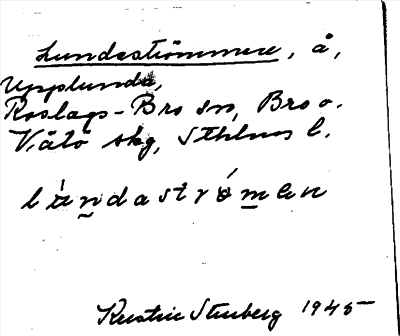 Lundaströmmen, å,
Upplunda,
Roslags-Bro sn, Bro o.
Vätö skg, Sthlms l.
lundaströmen
Kerstin Stenberg 1945